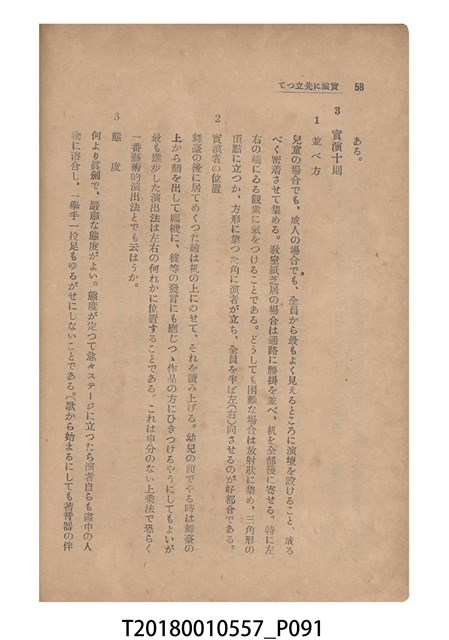 58
實演に先立つて
ある。
3 實演十則
1 並べ方
兒童の場合でも、成人の場合でも、全員から最もよく見えるところに演壇を設けること、成る
べく密着させて集める。教室紙芝居の場合は通路に腰掛を並べ、机を全部後に寄せる。特に左
右の端にゐる觀衆に氣をつけることである。どうしても困難な場合は放射狀に集め、三角形の
頂點に立つか、方形に集つた角に演者が立ち、全員を半ば左(右)向させるのが好都合である。
2 實演者の位置
舞臺の後に居てめくつた繪は机の上にのせて、それを讀み上げる。幼兒の前でやる時は舞臺の
上から顏を出して臨機に、彼等の發言にも應じつゝ作品の方にひきつけるやうにしてもよいが
最も進步した演出法は左右の何れかに位置することである。これは申分のない上乘法で恐らく
一番藝術的演出法とでも云はうか。
3 態度
何より眞劍で、嚴肅な態度がよい。態度が定つて愈々ステージに立つたら演者自らも畫中の人
物に溶合し、一擧手一投足もゆるがせにしないことである。歌から始まるにしても蓄音器の伴
T20180010557_P091